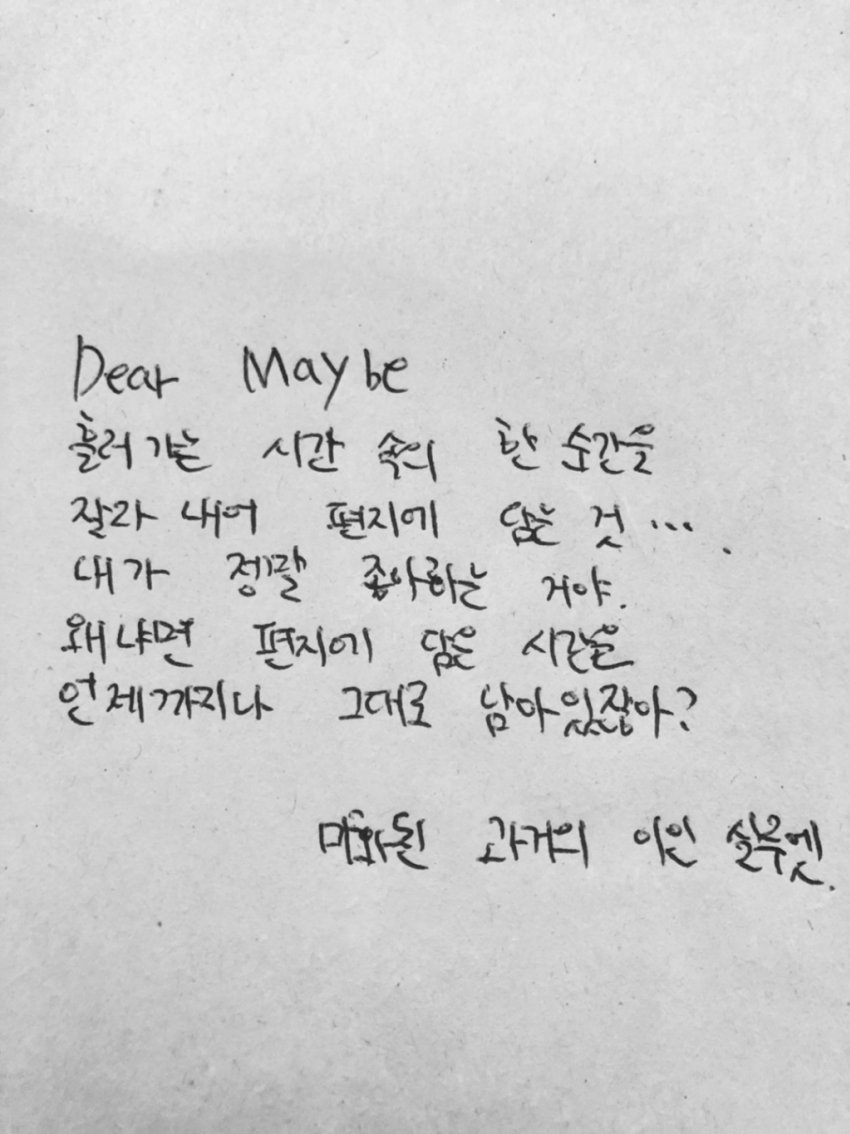 Dear Maybe
흘러가는 시간 속의 한 순간을
잘라 내어 편지에 담는 것….
내가 정말 좋아하는 거야.
왜냐면 편지에 담은 시간은
언제까지나 그대로 남아있잖아?
미화된 과거의 이인 실루엣.